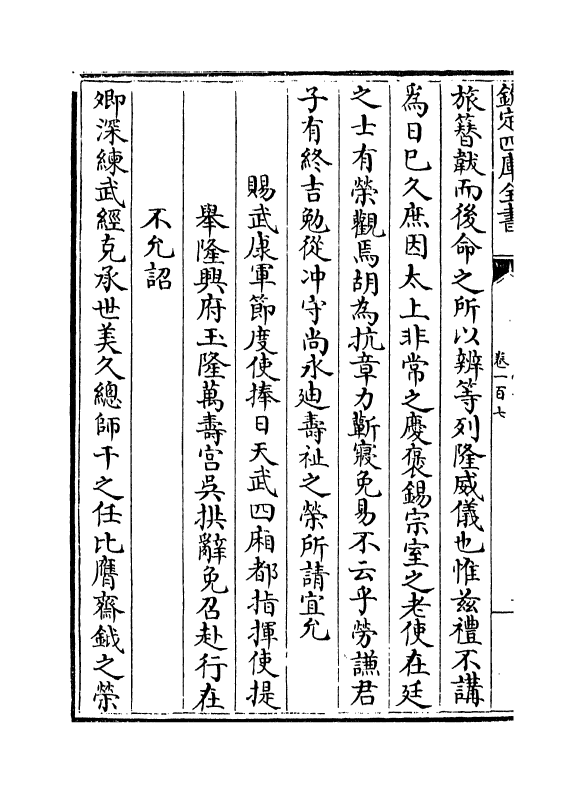 欽定四庫全書
卷一百七
旅簪韍而後命之所以辨等列隆威儀也惟兹禮不講
為日已久庶因太上非常之慶褒錫宗室之老使在廷
之士有榮觀焉胡為抗章力蘄寢免易不云乎勞謙君
子有終吉勉從冲守尚永廸壽祉之榮所請宜允
賜武康軍節度使捧日天武四廂都指揮使提
舉隆興府玉隆萬壽宫吳拱辭免召赴行在
不允詔
卿深練武經克承世美久總師干之任比膺齋鉞之榮